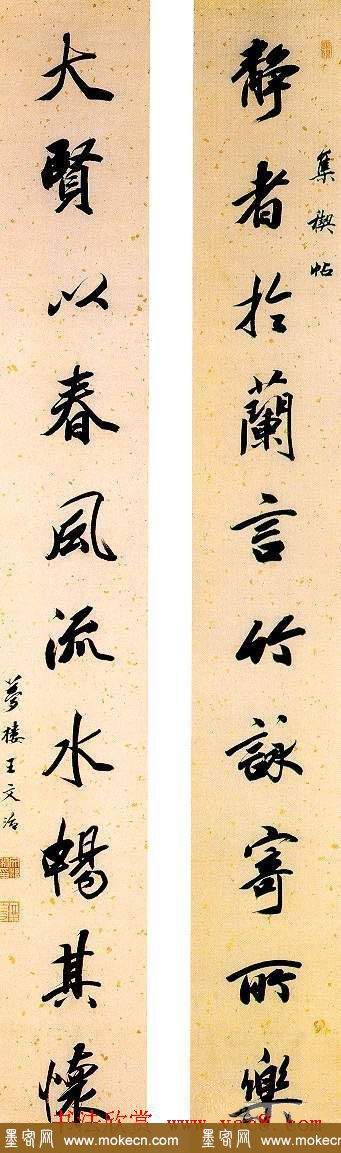 集禊帖
靜者於蘭言竹詠寄所樂
大賢以春風流水暢其懷
夢樓王文治
书法欣赏
墨客网 www.mokecn.com
墨客网 www.mokecn.com